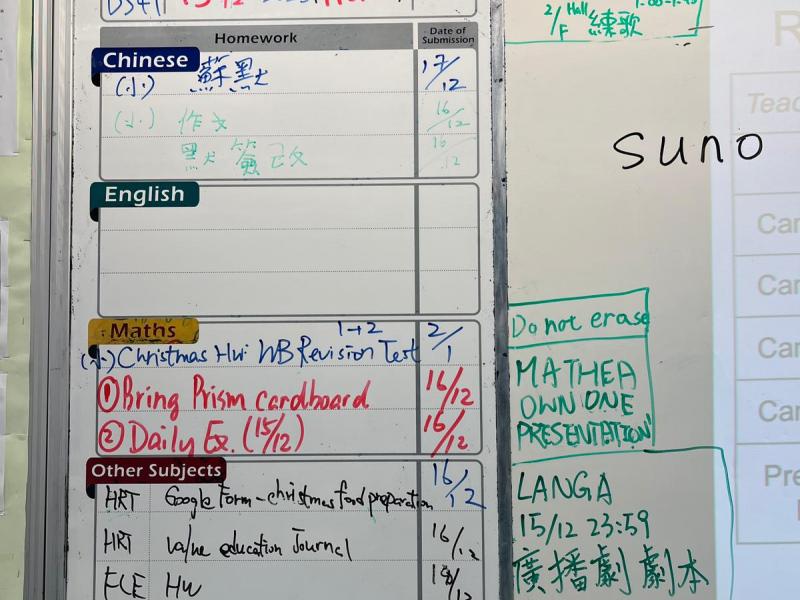 Homework
Date of Submission
Chinese
(小) 蘇默 17/12
(小) 作文 16/12
默簽改 16/12
English
Maths
(小) Christmas Hw WB Revision Test 1→2 2/1
① Bring Prism cardboard 16/12
② Daily Ex. (15/12) 16/12
Other Subjects
HRT Google Form - christmas food preparation 16/12
HRT value education Journal 16/12
HW
2/F Hall 練歌
suno
Do not erase
MATHEA
OWN ONE
PRESENTETION
LANGA
15/12 23:59
廣播劇 劇本
Car
Car
Car
Car
Pre